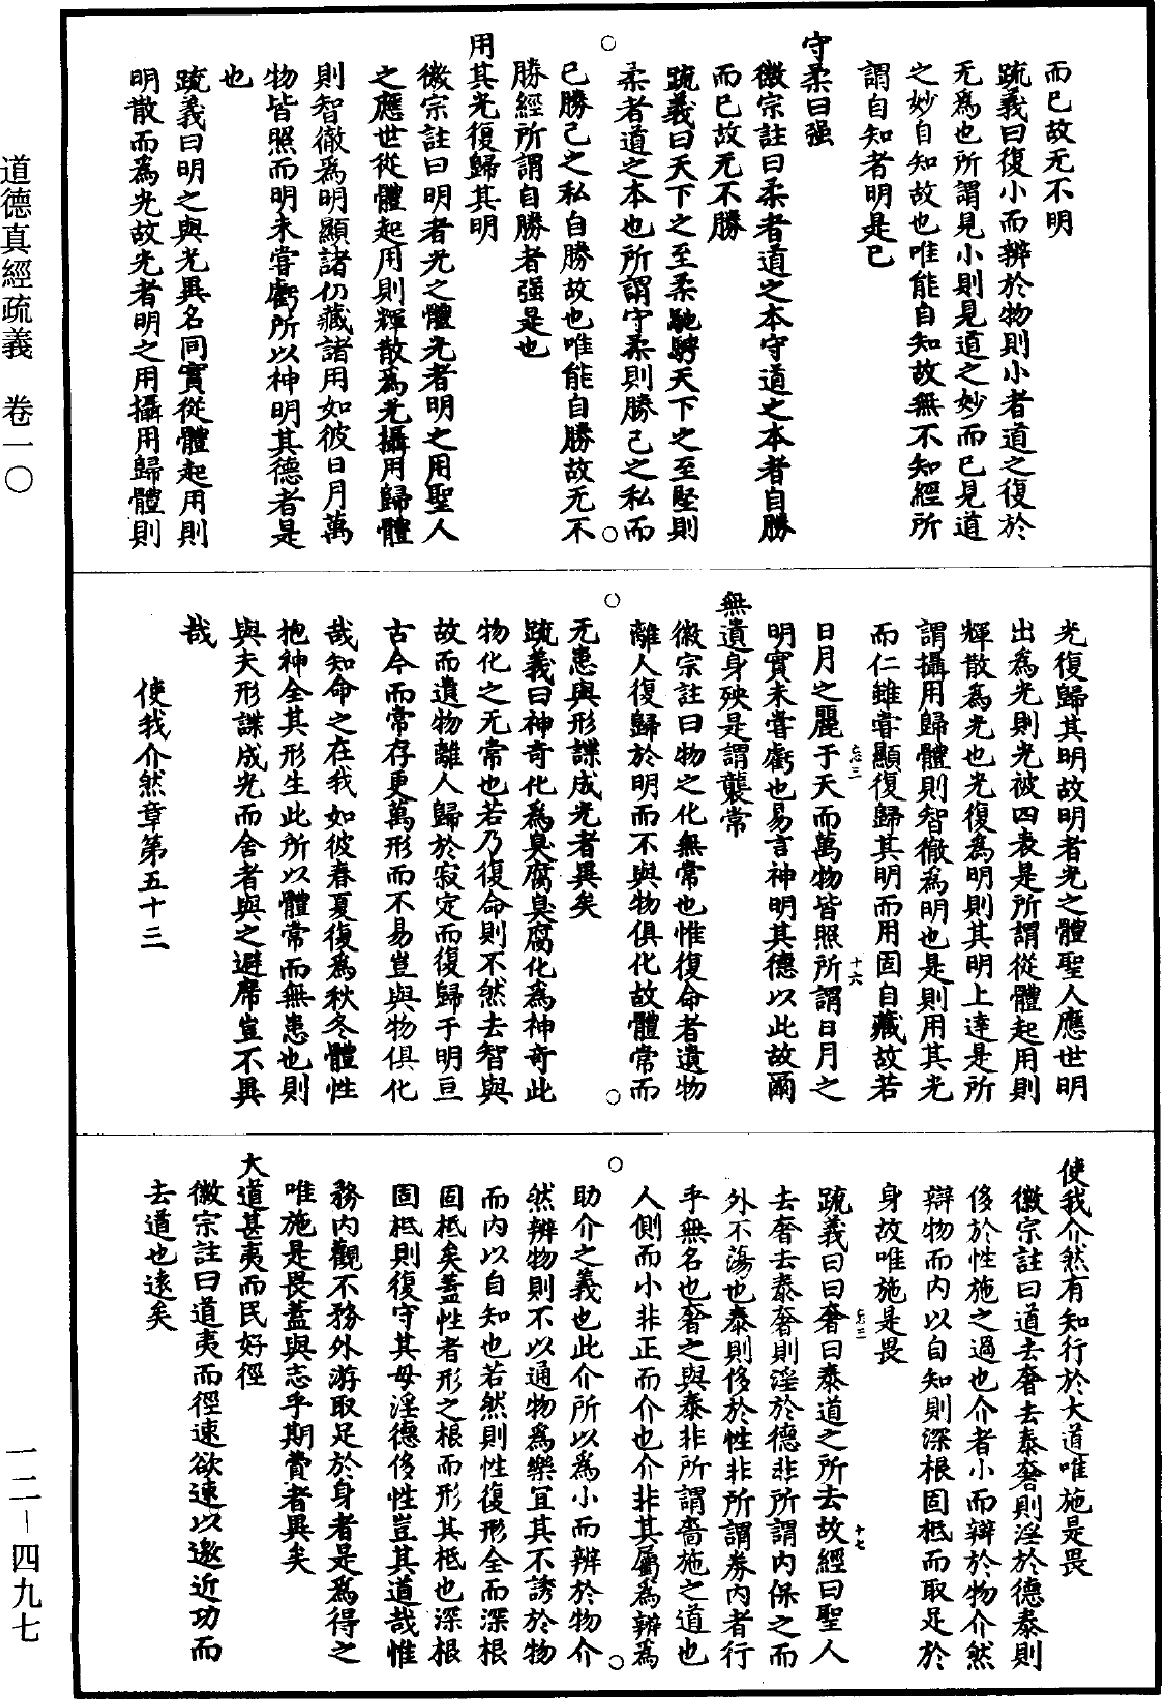 而已故无不明
疏義曰復小而辨於物則小者道之復於
无爲也所謂見小則見道之妙而已見道
之妙自知故也唯能自知故無不知經所
謂自知者明是已
守柔曰强
徽宗註曰柔者道之本守道之本者自勝
而已故无不勝
疏義曰天下之至柔馳騁天下之至堅則
柔者道之本也所謂守柔則勝己之私而
已勝己之私自勝故也唯能自勝故无不
勝經所謂自勝者强是也
用其光復歸其明
徽宗註曰明者光之體光者明之用聖人
之應世從體起用則輝散爲光攝用歸體
則智徹爲明顯諸仁藏諸用如彼日月萬
物皆照而明未嘗虧所以神明其德者是
也
疏義曰明之與光異名同實從體起用則
明散而爲光故光者明之用攝用歸體則
光復歸其明故明者光之體聖人應世明
出爲光則光被四表是所謂從體起用則
輝散爲光也光復爲明則其明上達是所
謂攝用歸體則智徹爲明也是則用其光
而仁雖嘗顯復歸其明而用固自藏故若
忘三
十六
日月之麗于天而萬物皆照所謂日月之
明實未嘗虧也易言神明其德以此故爾
無遺身殃是謂襲常
徽宗註曰物之化無常也惟復命者遺物
離人復歸於明而不與物俱化故體常而
无患與形諜成光者異矣
疏義曰神奇化爲臭腐臭腐化爲神奇此
物化之无常也若乃復命則不然去智與
故而遺物離人歸於寂定而復歸于明亘
古今而常存更萬形而不易豈與物俱化
哉知命之在我如彼春夏復爲秋冬體性
抱神全其形生此所以體常而無患也則
與夫形諜成光而舍者與之避席豈不異
哉
使我介然章第五十三
使我介然有知行於大道唯施是畏
徽宗註曰道去奢去泰奢則淫於德泰則
侈於性施之過也介者小而辯於物介然
辯物而内以自知則深根固柢而取足於
身故唯施是畏
疏義曰曰奢曰泰道之所去故經曰聖人
忘三
十七
去奢去泰奢則淫於德非所謂内保之而
外不蕩也泰則侈於性非所謂券内者行
乎無名也奢之與泰非所謂嗇施之道也
人側而小非正而介也介非其屬爲辨爲
助介之義也此介所以爲小而辨於物介
然辨物則不以通物爲樂冝其不誘於物
而内以自知也若然則性復形全而深根
固柢矣蓋性者形之根而形其柢也深根
固柢則復守其母淫德侈性豈其道哉惟
務内觀不務外游取足於身者是爲得之
唯施是畏蓋與志乎期費者異矣
大道甚夷而民好徑
徽宗註曰道夷而徑速欲速以邀近功而
去道也遠矣
道德真經疏義　卷一〇
一二—四九七